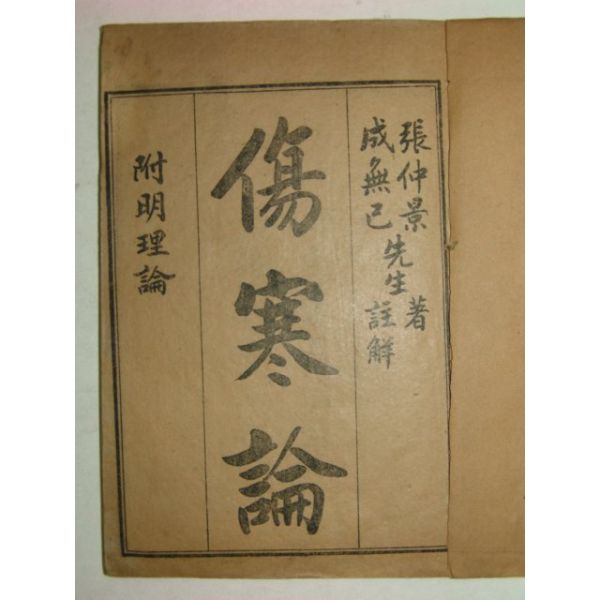 張仲景 著
成無己 先生 註解
傷寒論
附明理論